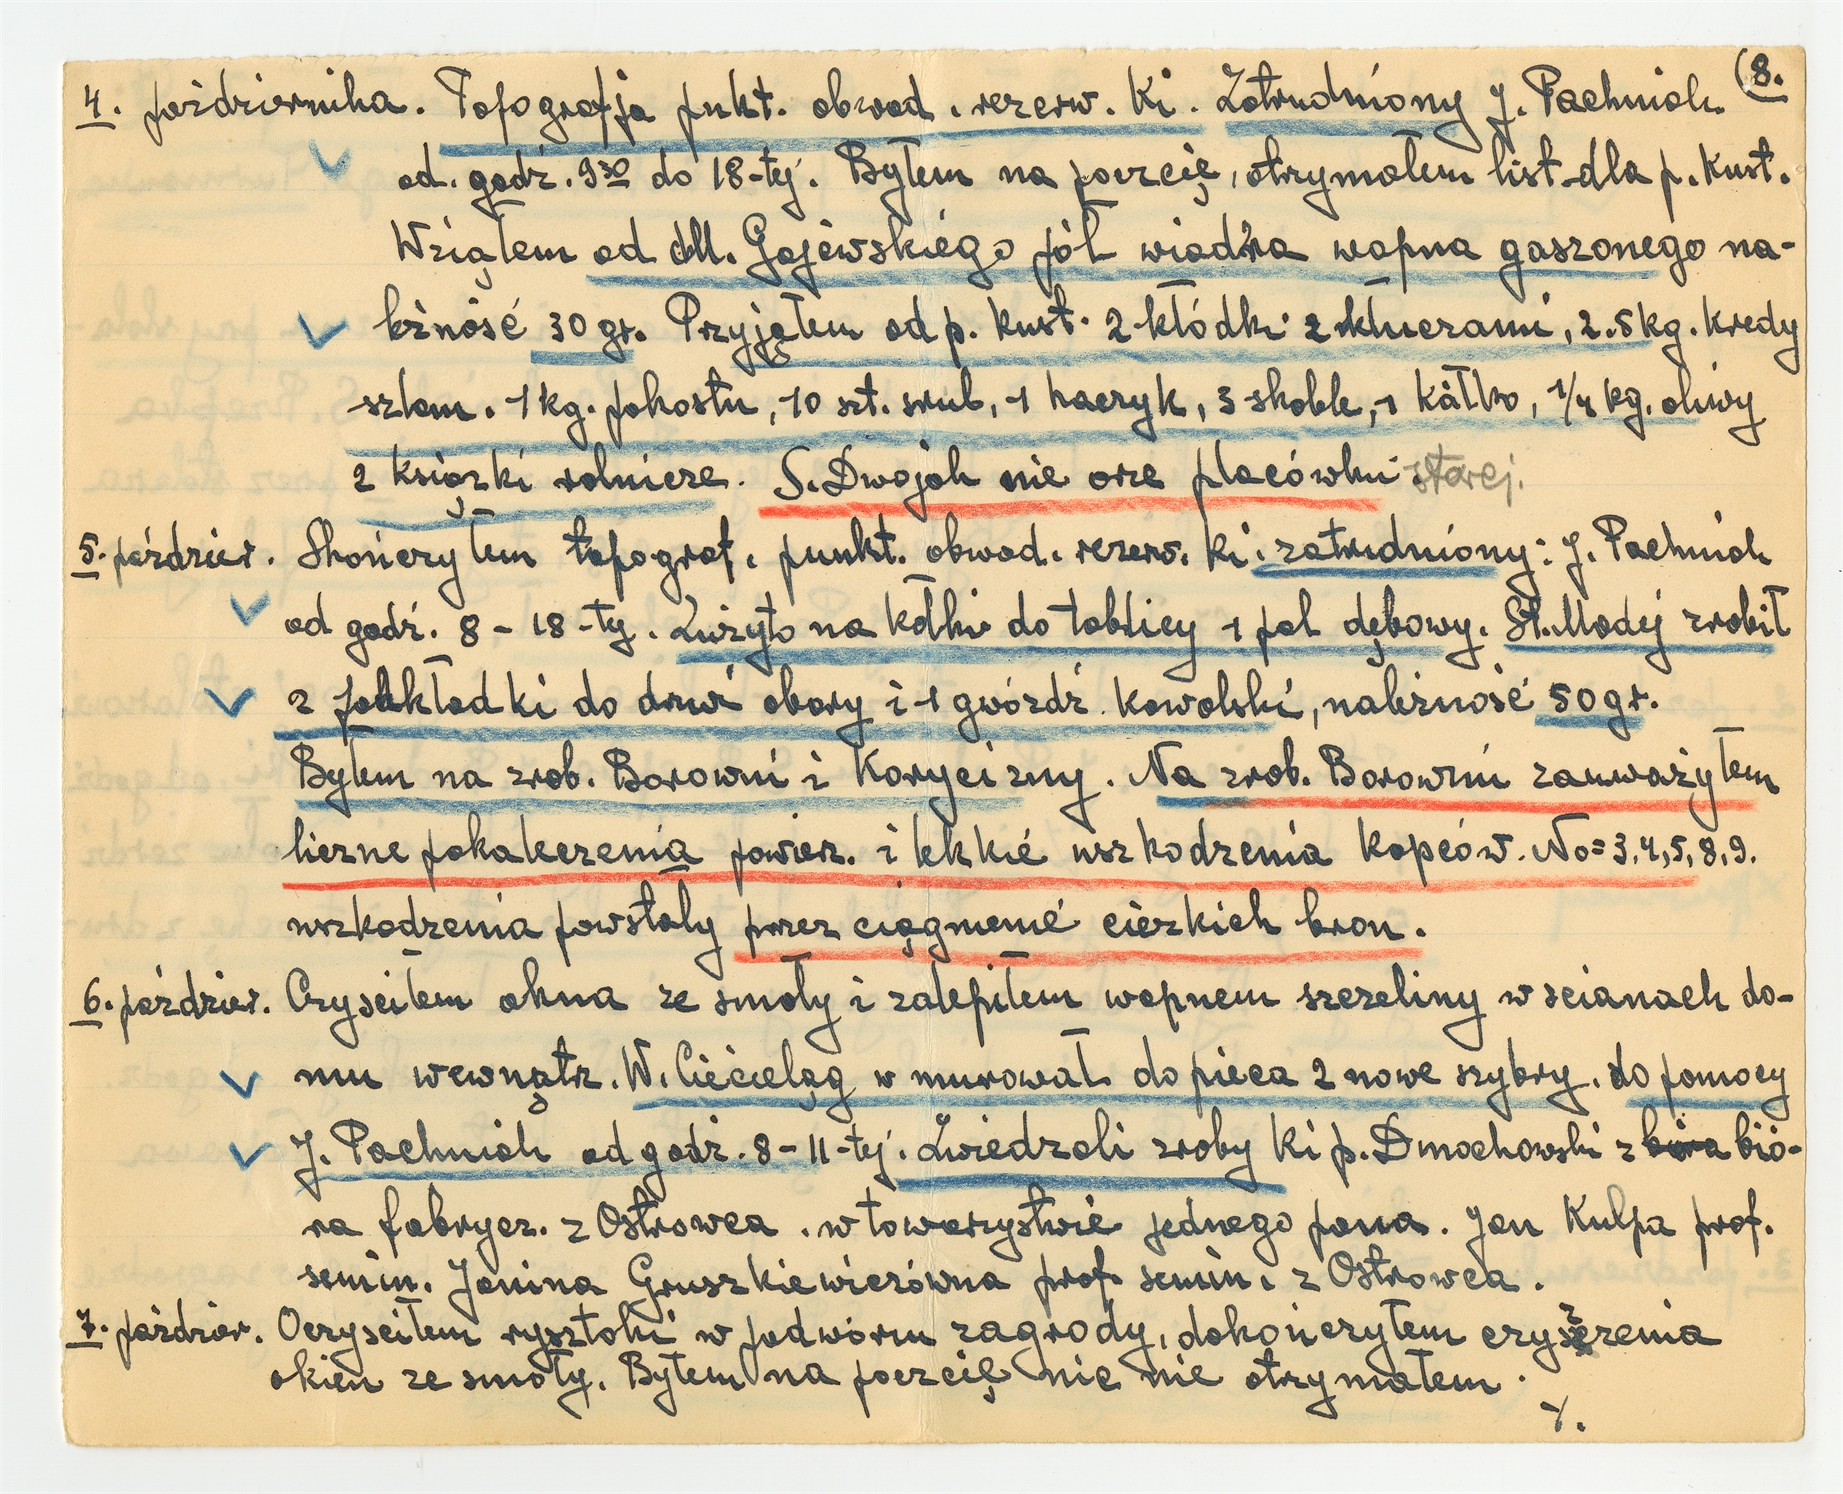 (8.
4. października. Topografja pukt. obwod. rezerw. Ki. Zatrudniony J. Pachniak
od. godz. 9³⁰ do 18-tej. Byłem na poczcię, otrymałem list dla p. Kust.
Wziąłem od M. Gajewskiego pół wiadra wapna gaszonego na-
leżność 30 gr. Przyjąłem od p. Kust. 2 kłódki z kluczami, 2.5 kg. kredy
szlam. 1 kg. pokostu, 10 szt. srub, 1 haczyk, 3 skoble, 1 kałko, 1/4 kg. oliwy
2 książki rolnicze. S. Dwojak nie orze placówki starej.
5. paździer. Skończyłem topograf. punkt. obwod. rezerw. Ki. zatrudniony: J. Pachniak
od godz. 8-18-tej. Zużyto na kołki do tablicy 1 pal dębowy. St. Madej zrobił
2 podkładki do drzwi obory i 1 gwóźdź kowalski, należność 50 gr.
Byłem na zrob. Borowni i Korycizny. Na zrob. Borowni zauważyłem
liczne pokaleczenia powierz. i lekkie uszkodzenia kopców. No=3,4,5,8,9.
uszkodzenia powstały przez ciągnienie ciężkich bron.
6. paździer. Czyściłem okna ze smoły i zalepiłem wapnem szczeliny w scianach do-
mu wewnątrz. W. Ciećieląg w murował do pieca 2 nowe szybry. do pomocy
J. Pachniak od godz. 8-11-tej. Zwiedzali zroby Ki p. Dmochowski z biura bió-
ra fabrycz. z Ostrowca. w towarzystwie jednego pana. Jan Kulpa prof.
semin. Janina Gruszkiewiczówna prof. semin. z Ostrowca.
7. paździer. Oczyściłem rysztoki w podwórzu zagrody, dokończyłem czyszczenia
okien ze smoły. Byłem na poczcię nic nie otrymałem.